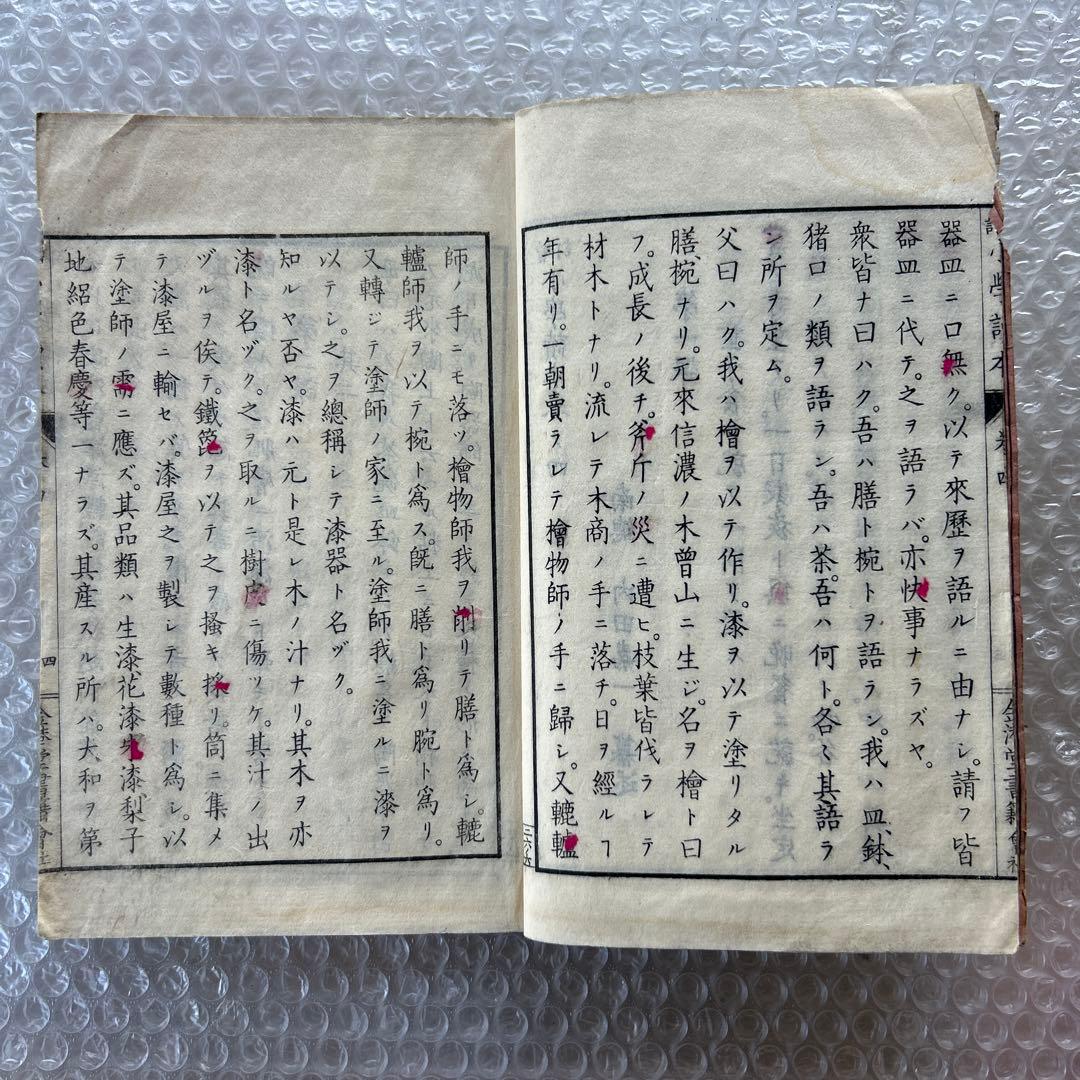 器皿ニ口無ク。以テ來歷ヲ語ルニ由ナシ。請フ皆
器皿ニ代テ。之ヲ語ラバ。亦快事ナラズヤ。
衆皆ナ曰ハク。吾ハ膳ト椀トヲ語ラン。我ハ皿、鉢、
猪口ノ類ヲ語ラン。吾ハ茶。吾ハ何ト。各〻其語ラ
ン所ヲ定ム。
父曰ハク。我ハ檜ヲ以テ作リ。漆ヲ以テ塗リタル
膳、椀ナリ。元來信濃ノ木曾山ニ生ジ。名ヲ檜ト曰
フ。成長ノ後チ。斧斤ノ災ニ遭ヒ。枝葉皆伐ラレテ
材木トナリ。流レテ木商ノ手ニ落チ。日ヲ經ルヿ
年有リ。一朝賣ラレテ檜物師ノ手ニ歸シ。又轆轤
師ノ手ニモ落ツ。檜物師我ヲ削リテ膳ト爲シ。轆
轤師我ヲ以テ椀ト爲ス。旣ニ膳ト爲リ腕ト爲リ。
又轉ジテ塗師ノ家ニ至ル。塗師我ニ塗ルニ漆ヲ
以テシ。之ヲ總稱シテ漆器ト名ヅク。
知ルヤ否ヤ。漆ハ元ト是レ木ノ汁ナリ。其木ヲ亦
漆ト名ヅク。之ヲ取ルニ樹皮ニ傷ツケ。其汁ノ出
ヅルヲ俟テ。鐵篦ヲ以テ之ヲ搔キ採リ。筒ニ集メ
テ漆屋ニ輸セバ。漆屋之ヲ製シテ數種ト爲シ。以
テ塗師ノ需ニ應ズ。其品類ハ生漆、花漆、朱漆、梨子
地、紹色、春慶等一ナラズ。其産スル所ハ。大和ヲ第
小學讀本
卷四
四
金港堂書籍會社